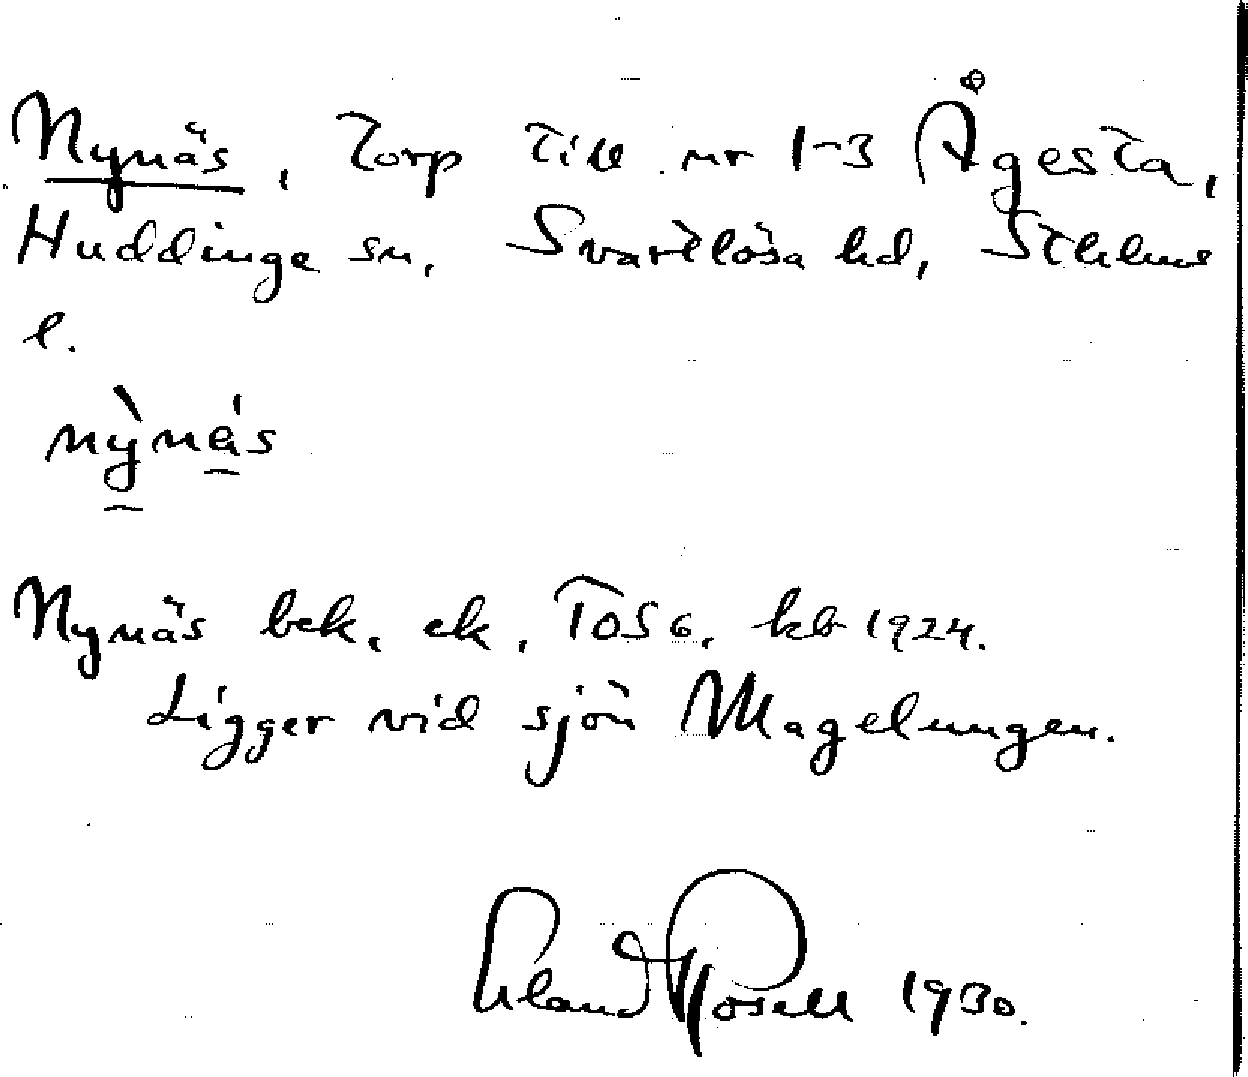 Nynäs, Torp till nr 1-3 Ågesta,
Huddinge sn, Svartlösa hd, Sthlms
l.
nỳnä́s
Nynäs bek, ek, TOS 6, kb 1924.
Ligger vid sjön Magelungen.
Erland Rosell 1930.